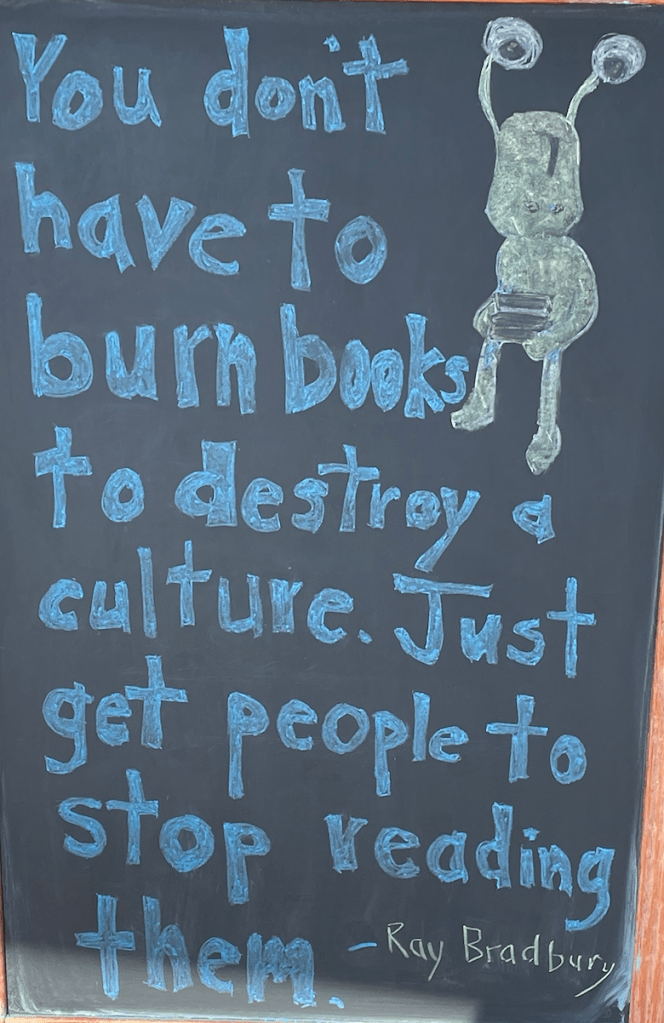 You don't
have to
burn books
to destroy a
culture. Just
get people to
stop reading
them. - Ray Bradbury